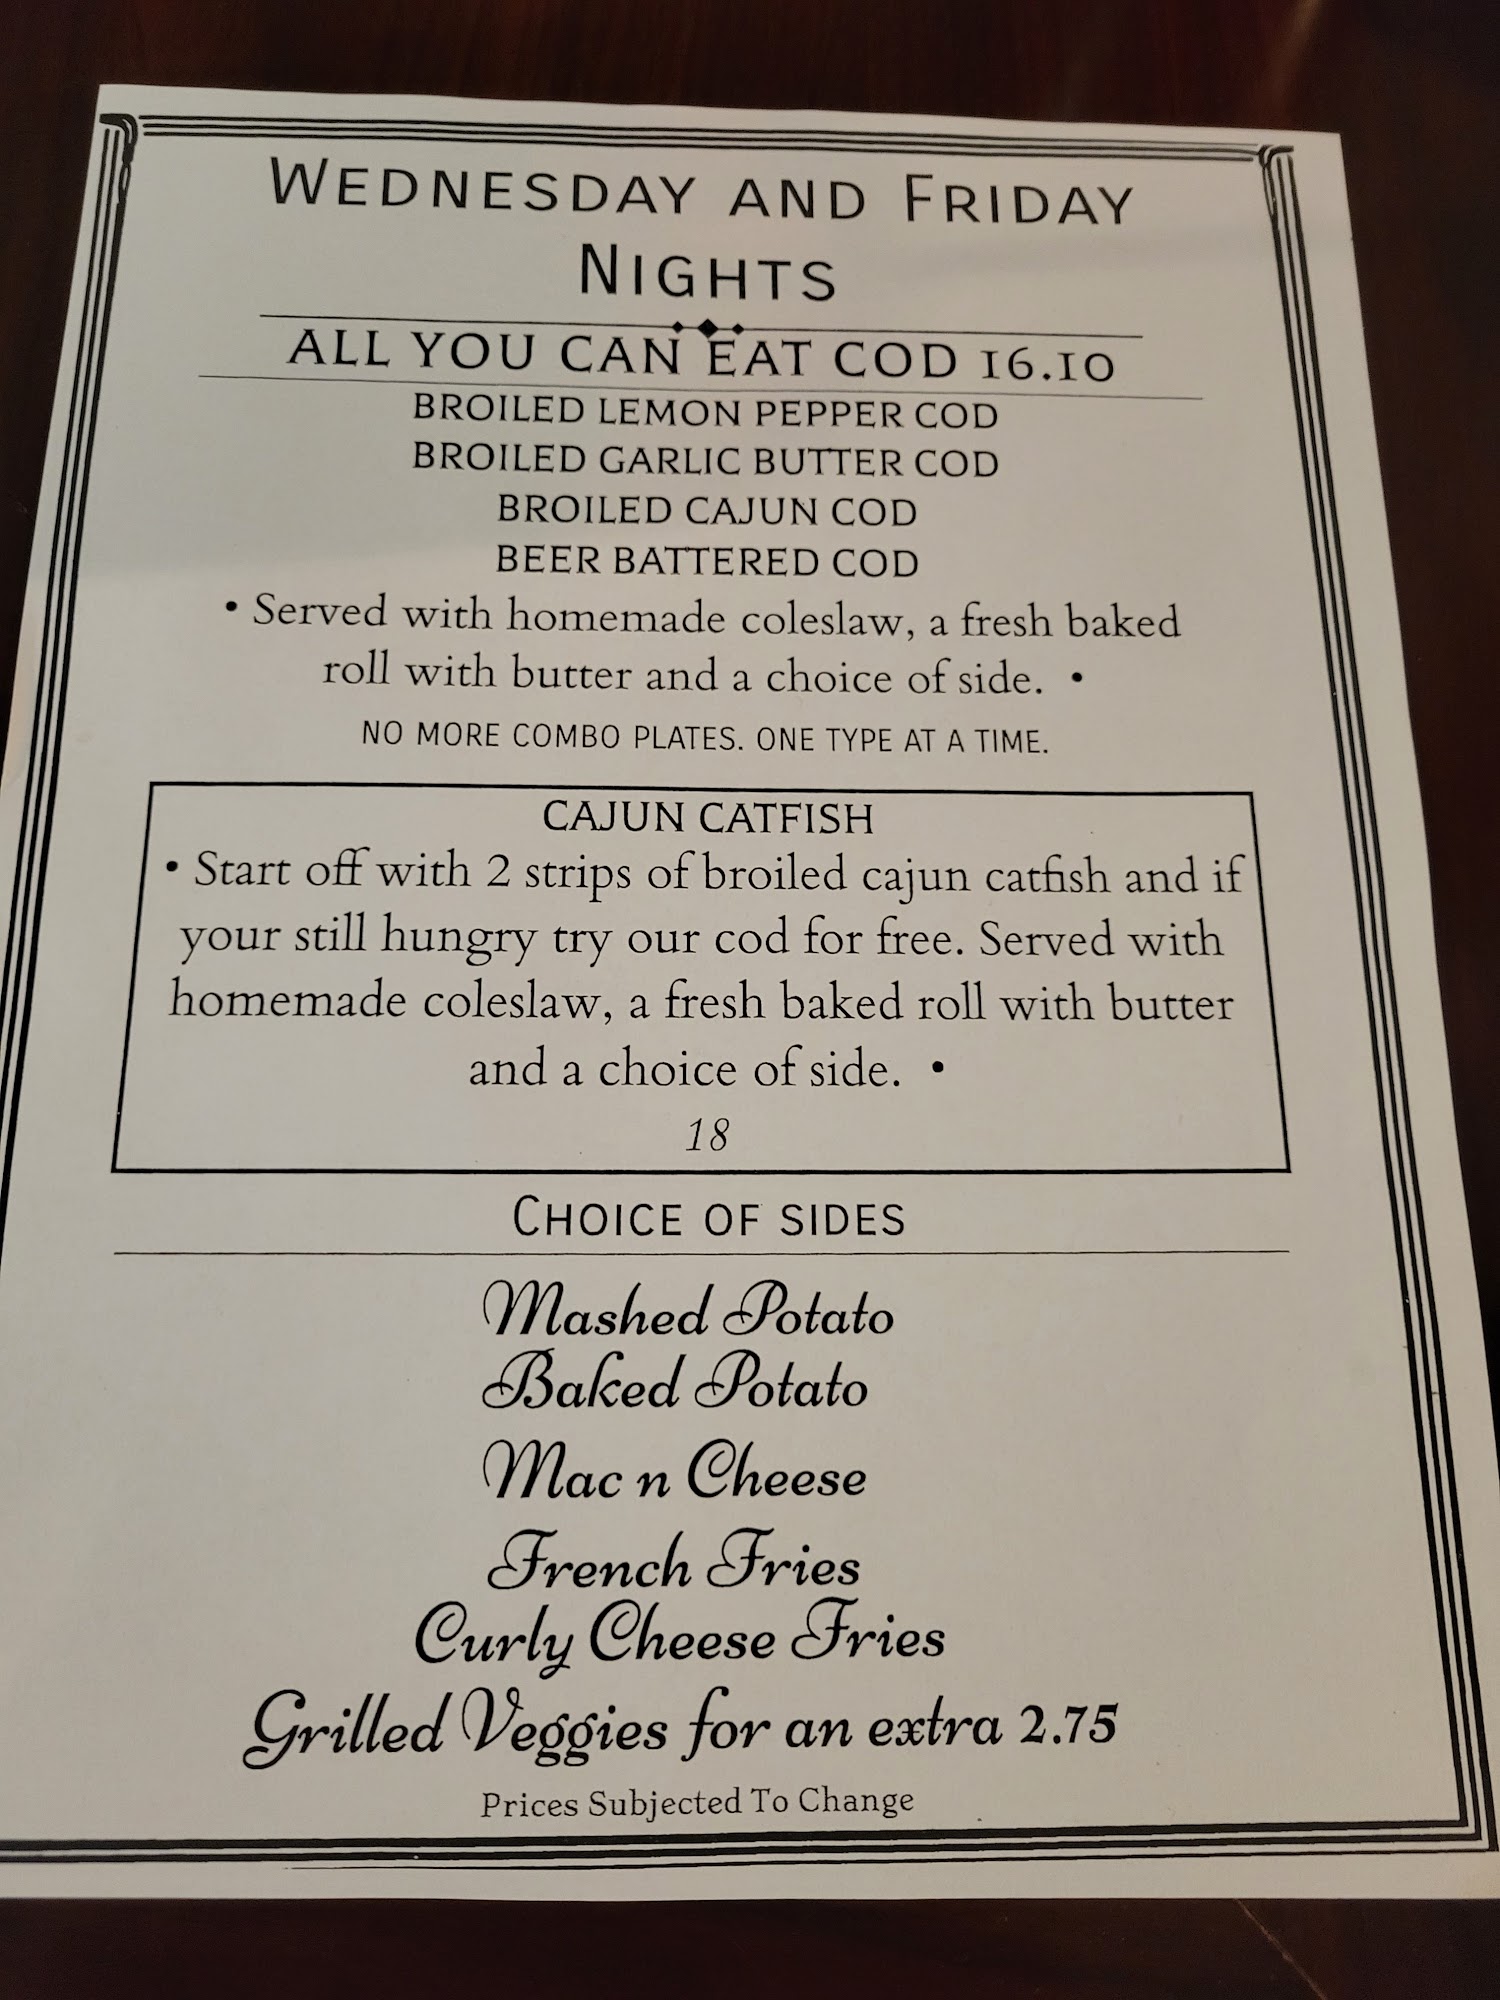 WEDNESDAY AND FRIDAY
NIGHTS
ALL YOU CAN EAT COD 16.10
BROILED LEMON PEPPER COD
BROILED GARLIC BUTTER COD
BROILED CAJUN COD
BEER BATTERED COD
• Served with homemade coleslaw, a fresh baked
roll with butter and a choice of side. •
NO MORE COMBO PLATES. ONE TYPE AT A TIME.
CAJUN CATFISH
• Start off with 2 strips of broiled cajun catfish and if
your still hungry try our cod for free. Served with
homemade coleslaw, a fresh baked roll with butter
and a choice of side. •
18
CHOICE OF SIDES
Mashed Potato
Baked Potato
Mac n Cheese
French Fries
Curly Cheese Fries
Grilled Veggies for an extra 2.75
Prices Subjected To Change